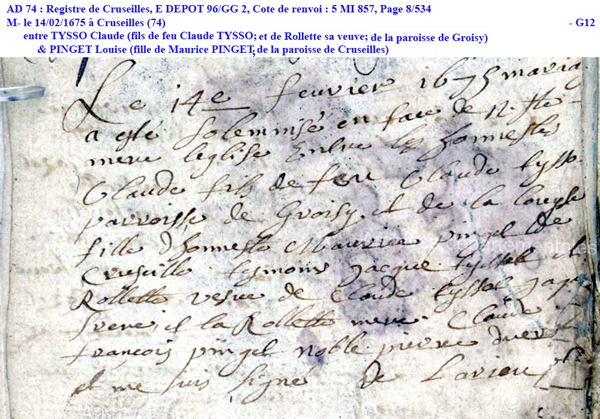 AD 74 : Registre de Cruseilles, E DEPOT 96/GG 2, Cote de renvoi : 5 MI 857, Page 8/534
M- le 14/02/1675 à Cruseilles (74) - G12
entre TYSSO Claude (fils de feu Claude TYSSO; et de Rollette sa veuve; de la paroisse de Groisy)
& PINGET Louise (fille de Maurice PINGET; de la paroisse de Cruseilles)
Le 14e feuvrier 1675 mariag
a esté solemnisé en face de Nre Ste
mere leglise Entre les honnestes
Claude fils de feu Claude tysso
parroisse de Groisy et de la Loeyse
fille dhonneste Maurice pinget de
Cruseille tesmoins Jacque tyssot et
Rollette vesve de Claude tyssot
frere et la Rollette mere Claude
francois pinget noble pierre
et me suis signé De Lavieu